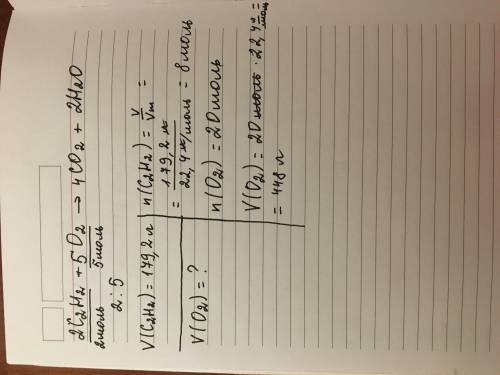 2C₂H₂ + 5O₂ → 4CO₂ + 2H₂O
2моль 5моль
2 : 5
V(C₂H₂) = 179,2 л
V(O₂) = ?
n(C₂H₂) = V/Vm =
= 179,2 л / 22,4 л/моль = 8 моль
n(O₂) = 20 моль
V(O₂) = 20 моль · 22,4 л/моль =
= 448 л